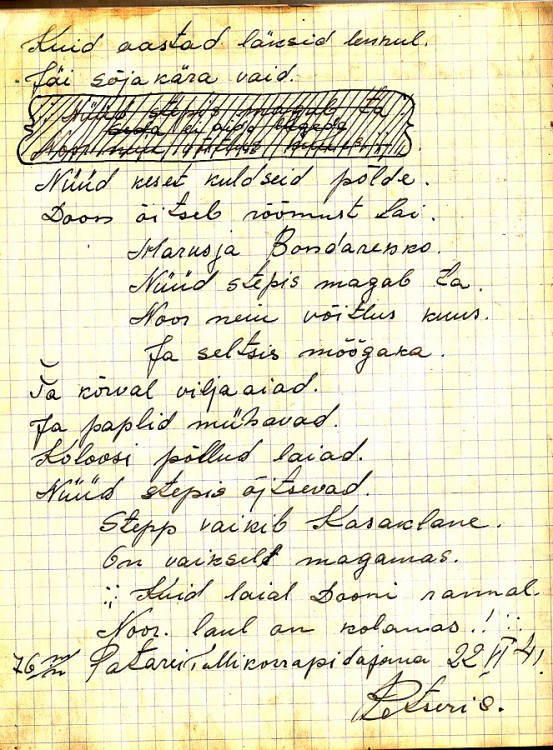 Kuid aastad läksid lennul.
Jäi sõja kära vaid.
Nüüd stepis magab ta
Noor neiu
Nüüd keset kuldseid põlde.
Doon õitseb rõõmust lai.
Marusja Bondarenko.
Nüüd stepis magab ta.
Noor neiu võitlus kuus.
Ja seltsis mõõgaka.
Ta kõrval vilja aiad.
Ja paplid mühavad.
Koloosi põllud laiad.
Nüüd stepis õitsevad.
Stepp vaikib Kasaklane.
On vaikselt magamas.
:: Kuid laial Dooni rannal.
Noor. laul on kolamas.! ::
76 m/m Patarei Tullikorrapidajana 22 VI 41.